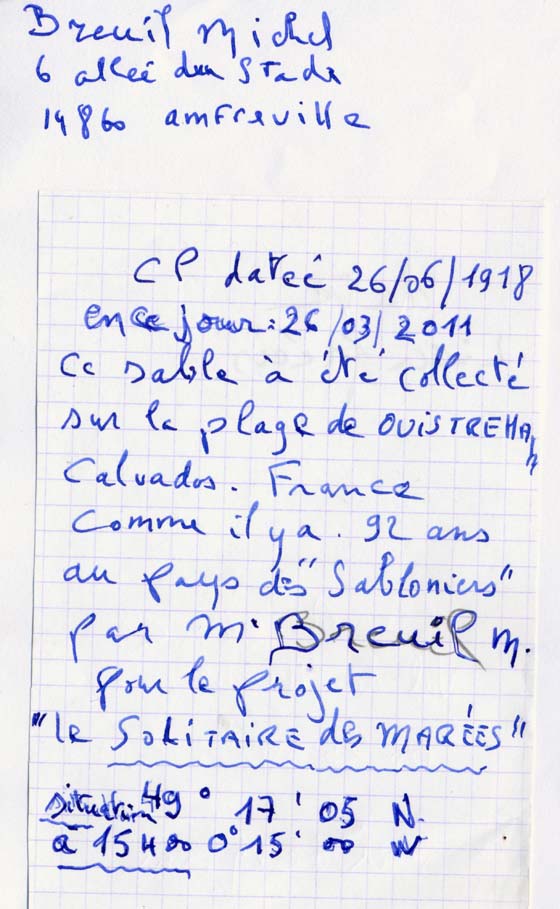 Breuil Michel
6 allée du Stade
14860 amfreville
CP dateé 26/06/1918
en ce jour : 26/03/2011
Ce sable à été collecté
sur la plage de OUISTREHAM
Calvados. France
Comme il y a. 92 ans
au pays des "Sabloniers"
par Mr Breuil M.
pour le projet
"le SOLITAIRE des MARÉES"
situation 49° 17' 05 N.
a 15 H 00 0° 15' 00 W